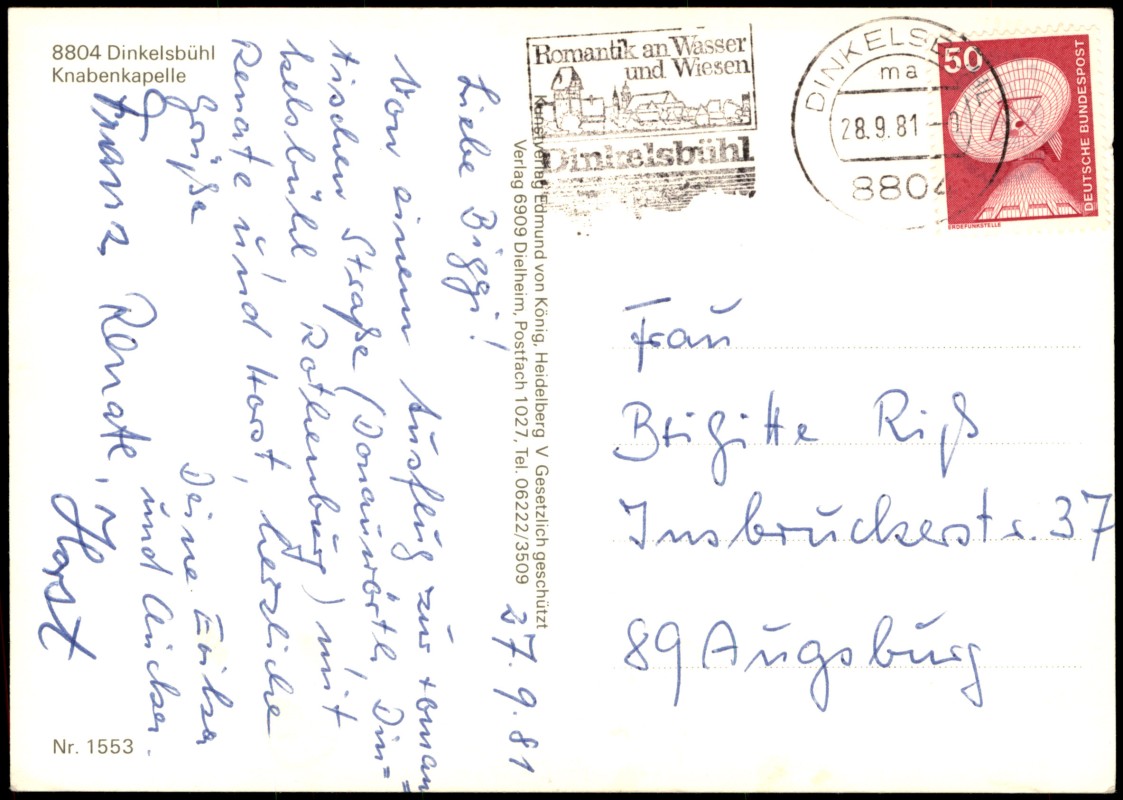 8804 Dinkelsbühl
Knabenkapelle
27. 9. 81
Liebe Biggi!
Von einem Ausflug zur roman
tischen Straße (Donauwörth, Din=
kelsbühl Rothenburg) mit
Renate und Horst, herzliche
Grüße
Deine
und
Renate,
Horst
Nr. 1553
Kunstverlag Edmund von König, Heidelberg V Gesetzlich geschützt
Verlag 6909 Dielheim, Postfach 1027, Tel. 06222/3509
Romantik an Wasser
und Wiesen
Dinkelsbühl
DINKELSBÜHL
ma
28.9.81
8804
50
DEUTSCHE BUNDESPOST
ERDEFUNKSTELLE
Frau
Brigitte Riß
Insbruckerstr. 37
89 Augsburg